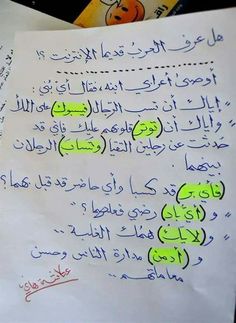 هل عرف العرب قديما الإنترنت ؟!
أوصى أعرابي ابنه ، فقال أي بُني :
" إياك أن تسب الرجال (فيسبوك) على الملأ
" وإياك أن (توتر) قلوبهم عليك فإني قد
حدثت عن رجلين التقيا (وتساب) الرجلان
بينهما
" (فأي بر) قد كسبا وأي حاضر قد قيل بهما ؟
" و (أي باد) رضي فعلهما ؟ "
" و (لا يك) همك الغلبة ..
و (أدمن) مداراة الناس وحسن
معاملتهم ..